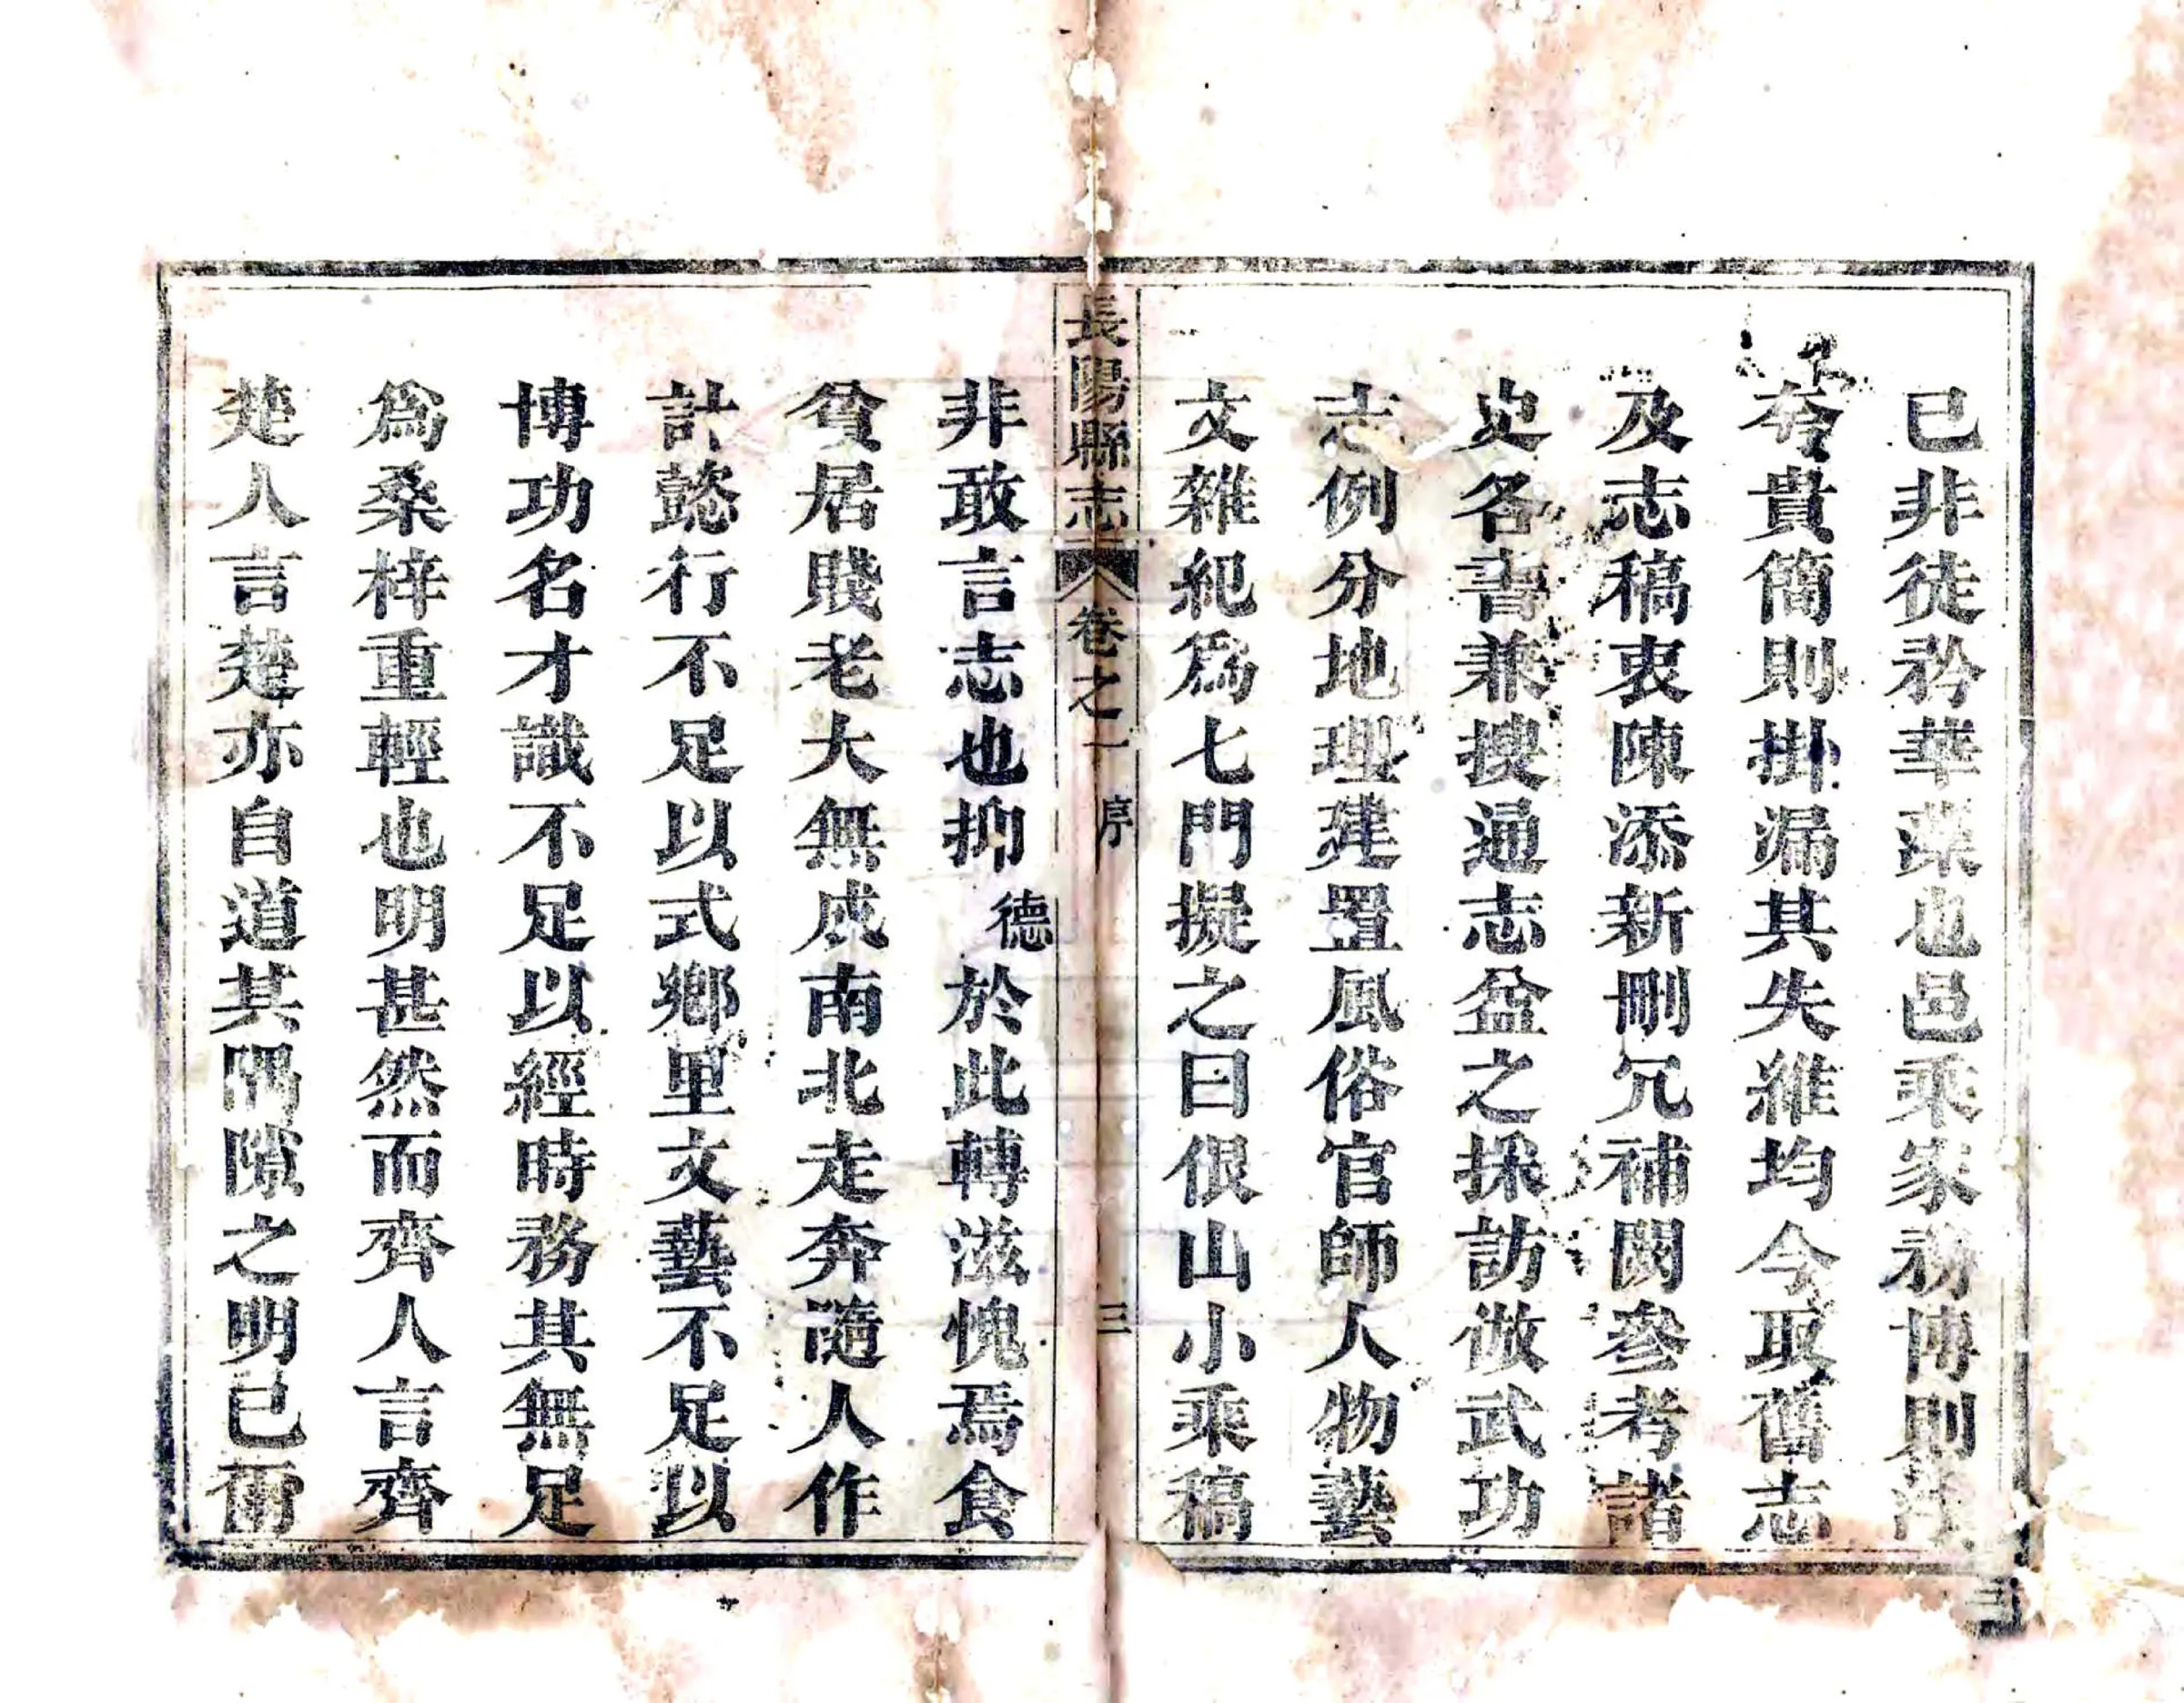 已非徒矜華藻也邑乘家務博則泛
夸貴簡則掛漏其失維均今取舊志
及志稿衷陳添新刪冗補闕參考諸
史各書兼搜通志益之採訪倣武功
志例分地理建置風俗官師人物藝
文雜紀爲七門擬之曰佷山小乘稿
長陽縣志
卷之一 序 三
非敢言志也抑德於此轉滋愧焉食
貧居賤老大無成南北走奔隨人作
計懿行不足以式鄉里文藝不足以
博功名才識不足以經時務其無足
爲桑梓重輕也明甚然而齊人言齊
楚人言楚亦自道其隅隙之明已爾
三